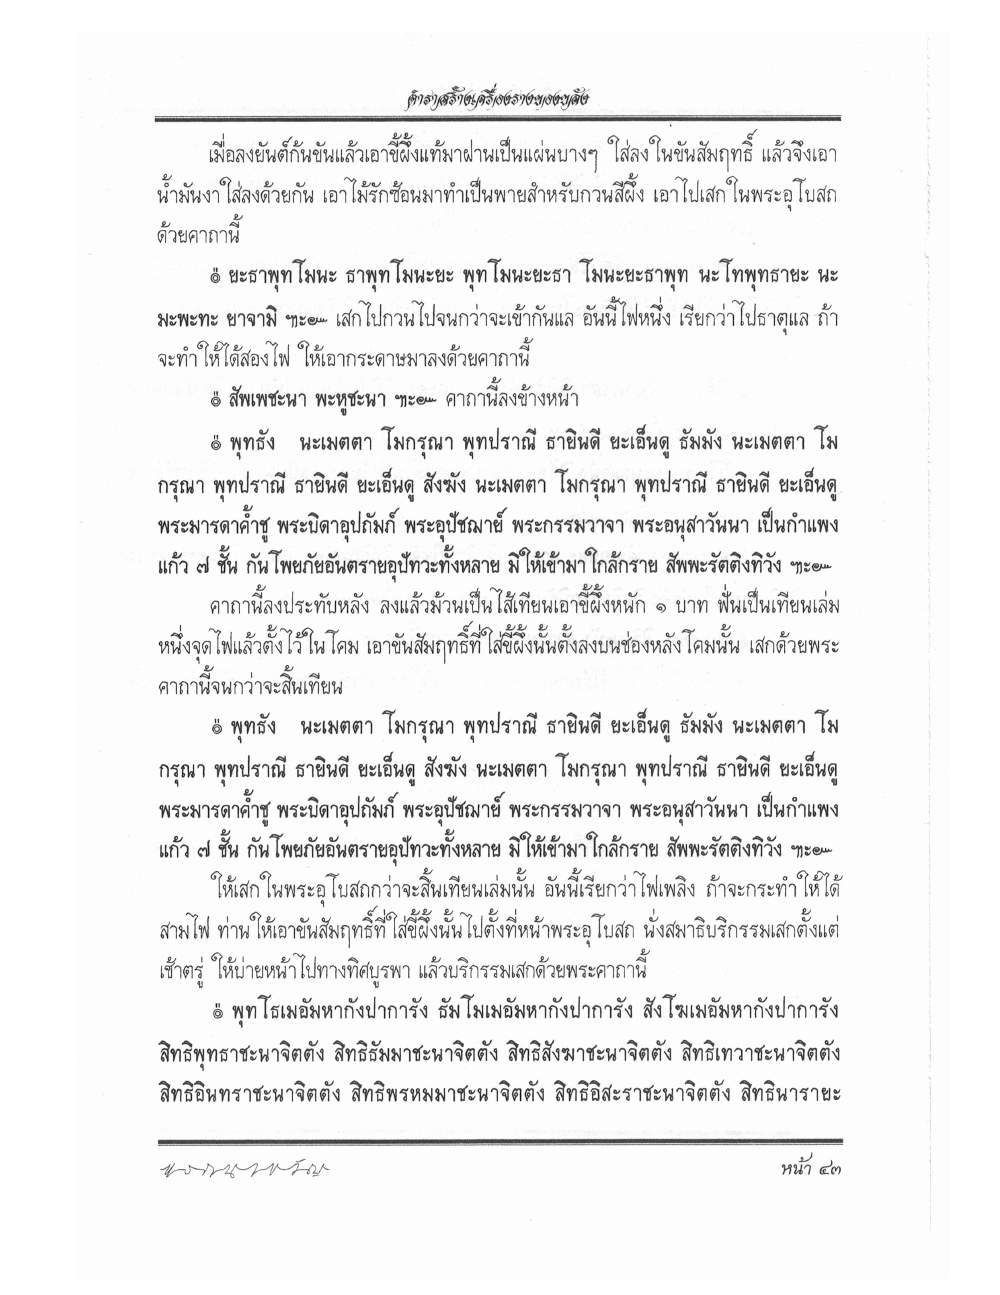 ตำราสร้างเครื่องรางของขลัง
เมื่อลงยันต์ก้นขันแล้วเอาขี้ผึ้งแท้มาฝานเป็นแผ่นบางๆ ใส่ลงในขันสัมฤทธิ์ แล้วจึงเอา
น้ำมันงาใส่ลงด้วยกัน เอาไม้รักซ้อนมาทำเป็นพายสำหรับกวนสีผึ้ง เอาไปเสกในพระอุโบสถ
ด้วยคาถานี้
๏ ยะธาพุทโมนะ ธาพุทโมนะยะ พุทโมนะยะธา โมนะยะธาพุท นะโทพุทธายะ นะ
มะพะทะ ยาจามิ ฯะ๛ เสกไปกวนไปจนกว่าจะเข้ากันแล อันนี้ไฟหนึ่ง เรียกว่าไปธาตุแล ถ้า
จะทำให้ได้สองไฟ ให้เอากระดาษมาลงด้วยคาถานี้
๏ สัพเพชะนา พะหูชะนา ฯะ๛ คาถานี้ลงข้างหน้า
๏ พุทธัง นะเมตตา โมกรุณา พุทปราณี ธายินดี ยะเอ็นดู ธัมมัง นะเมตตา โม
กรุณา พุทปราณี ธายินดี ยะเอ็นดู สังฆัง นะเมตตา โมกรุณา พุทปราณี ธายินดี ยะเอ็นดู
พระมารดาค้ำชู พระบิดาอุปถัมภ์ พระอุปัชฌาย์ พระกรรมวาจา พระอนุสาวันนา เป็นกำแพง
แก้ว ๗ ชั้น กันโพยภัยอันตรายอุปัทวะทั้งหลาย มิให้เข้ามาใกล้กราย สัพพะรัตติงทิวัง ฯะ๛
คาถานี้ลงประทับหลัง ลงแล้วม้วนเป็นไส้เทียนเอาขี้ผึ้งหนัก ๑ บาท ฟั่นเป็นเทียนเล่ม
หนึ่งจุดไฟแล้วตั้งไว้ในโคม เอาขันสัมฤทธิ์ที่ใส่ขี้ผึ้งนั้นตั้งลงบนช่องหลังโคมนั้น เสกด้วยพระ
คาถานี้จนกว่าจะสิ้นเทียน
๏ พุทธัง นะเมตตา โมกรุณา พุทปราณี ธายินดี ยะเอ็นดู ธัมมัง นะเมตตา โม
กรุณา พุทปราณี ธายินดี ยะเอ็นดู สังฆัง นะเมตตา โมกรุณา พุทปราณี ธายินดี ยะเอ็นดู
พระมารดาค้ำชู พระบิดาอุปถัมภ์ พระอุปัชฌาย์ พระกรรมวาจา พระอนุสาวันนา เป็นกำแพง
แก้ว ๗ ชั้น กันโพยภัยอันตรายอุปัทวะทั้งหลาย มิให้เข้ามาใกล้กราย สัพพะรัตติงทิวัง ฯะ๛
ให้เสกในพระอุโบสถกว่าจะสิ้นเทียนเล่มนั้น อันนี้เรียกว่าไฟเพลิง ถ้าจะกระทำให้ได้
สามไฟ ท่านให้เอาขันสัมฤทธิ์ที่ใส่ขี้ผึ้งนั้นไปตั้งที่หน้าพระอุโบสถ นั่งสมาธิบริกรรมเสกตั้งแต่
เช้าตรู่ ให้บ่ายหน้าไปทางทิศบูรพา แล้วบริกรรมเสกด้วยพระคาถานี้
๏ พุทโธเมอัมหากังปาการัง ธัมโมเมอัมหากังปาการัง สังโฆเมอัมหากังปาการัง
สิทธิพุทธาชะนาจิตตัง สิทธิธัมมาชะนาจิตตัง สิทธิสังฆาชะนาจิตตัง สิทธิเทวาชะนาจิตตัง
สิทธิอินทราชะนาจิตตัง สิทธิพรหมมาชะนาจิตตัง สิทธิอิสะราชะนาจิตตัง สิทธินารายะ
หน้า ๔๓